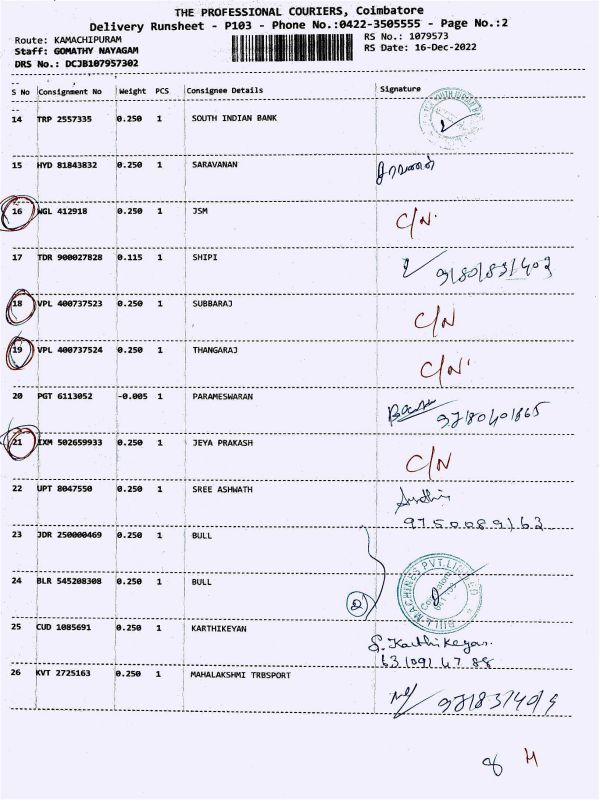 THE PROFESSIONAL COURIERS, Coimbatore
Delivery Runsheet - P103 - Phone No.:0422-3505555 - Page No.:2
Route: KAMACHIPURAM RS No.: 1079573
Staff: GOMATHY NAYAGAM RS Date: 16-Dec-2022
DRS No.: DCJB107957302
S No Consignment No Weight PCS Consignee Details Signature
14 TRP 2557335 0.250 1 SOUTH INDIAN BANK
15 HYD 81843832 0.250 1 SARAVANAN சரவணன்
16 WGL 412918 0.250 1 JSM C/N.
17 TDR 900027828 0.115 1 SHIPI
18 VPL 400737523 0.250 1 SUBBARAJ C/N
19 VPL 400737524 0.250 1 THANGARAJ C/N
20 PGT 6113052 -0.005 1 PARAMESWARAN
21 IXM 502659933 0.250 1 JEYA PRAKASH C/N
22 UPT 8047550 0.250 1 SREE ASHWATH
9750089163
23 JDR 250000469 0.250 1 BULL
24 BLR 545208308 0.250 1 BULL 2
BULL MACHINES PVT. LIMITED
25 CUD 1085691 0.250 1 KARTHIKEYAN
S. Karthikeyan
26 KVT 2725163 0.250 1 MAHALAKSHMI TRBSPORT
8 H